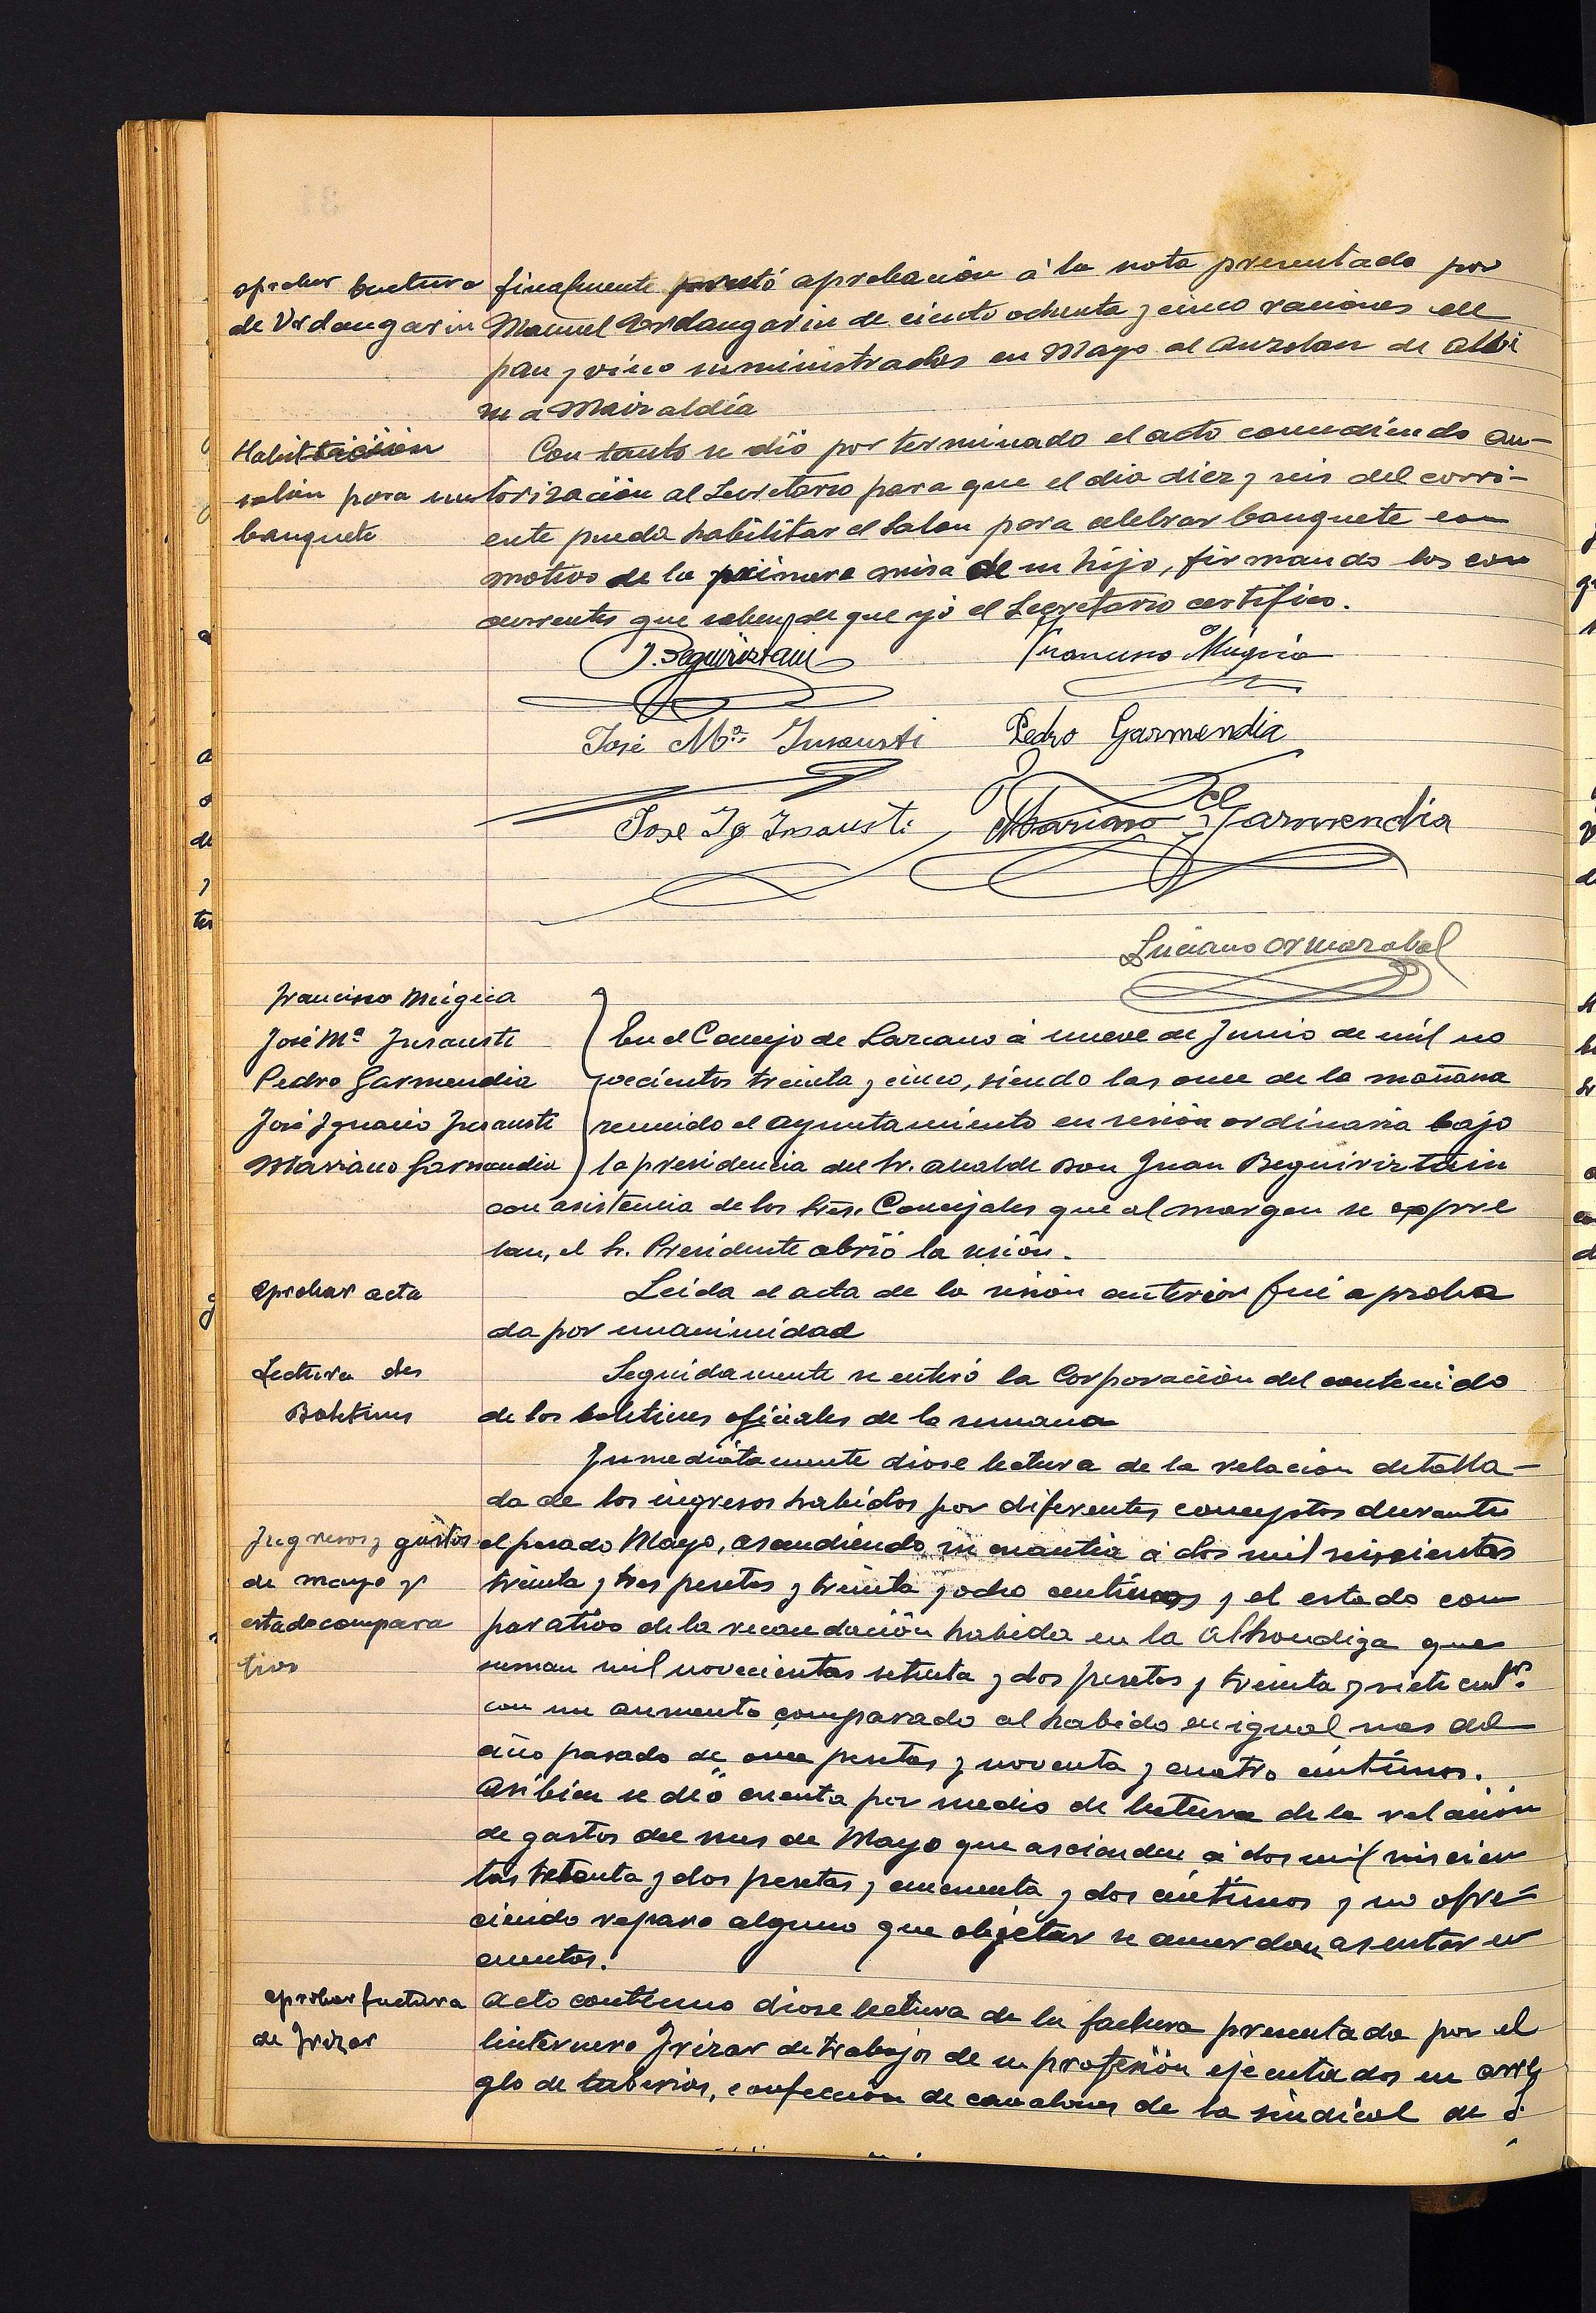 aprobar factura
de Urdangarin
finalmente prestó aprobación á la nota presentada por
Manuel Urdangarin de ciento ochenta y cinco raciones de
pan y vino suministrados en Mayo al auzolan de Albi
su a Maizaldia
Habilitación
salón para un
banquete
Con tanto se dió por terminado el acto concediendo au-
torización al Secretario para que el dia diez y seis del corri-
ente pueda habilitar el Salon para celebrar banquete con
motivo de la primera misa de su hijo, firmando los con
currentes que saben de que yó el Secretario certifico.
J. Beguiristain
Francisco Múgica
José Mª Insausti
Pedro Garmendia
José Ig Insausti
Mariano Garmendia
Luciano Ormazabal
Francisco Múgica
José Mª Insausti
Pedro Garmendia
José Ignacio Insausti
Mariano Garmendia
En el Concejo de Lazcano á nueve de Junio de mil no
vecientos treinta y cinco, siendo las once de la mañana
reunido el ayuntamiento en sesión ordinaria bajo
la presidencia del Sr. alcalde Don Juan Beguiriztain
con asistencia de los Sres. Concejales que al margen se expre
san, el Sr. Presidente abrió la sesión.
Aprobar acta
Leida el acta de la sesión anterior fué aproba
da por unanimidad
Lectura des
Boletines
Seguidamente se enteró la Corporación del contenido
de los boletines oficiales de la semana
Inmediatamente diose lectura de la relacion detalla-
da de los ingresos habidos por diferentes conceptos durante
Ingresos y gastos
de mayo y
estado compara
tivo
el pasado Mayo, ascendiendo su cuantia á dos mil seiscientas
treinta y tres pesetas y treinta y ocho centimos y el estado com
parativo de la recaudación habida en la Alhondiga que
suman mil novecientas setenta y dos pesetas y treinta y siete cents.
con un aumento comparado al habido en igual mes del
año pasado de once pesetas y noventa y cuatro céntimos.
Asi bien se dió cuenta por medio de lectura de la relación
de gastos del mes de Mayo que ascienden á dos mil seiscien
tas setenta y dos pesetas y cincuenta y dos céntimos y no ofre-
ciendo reparo alguno que objetar se acuerdan asentar en
cuentas.
aprobar factura
de Irizar
Acto contínuo diose lectura de la factura presentada por el
linternero Irizar de trabajos de su profesión ejecutados en arre
glo de tuberias, confección de canalones de la sindical de